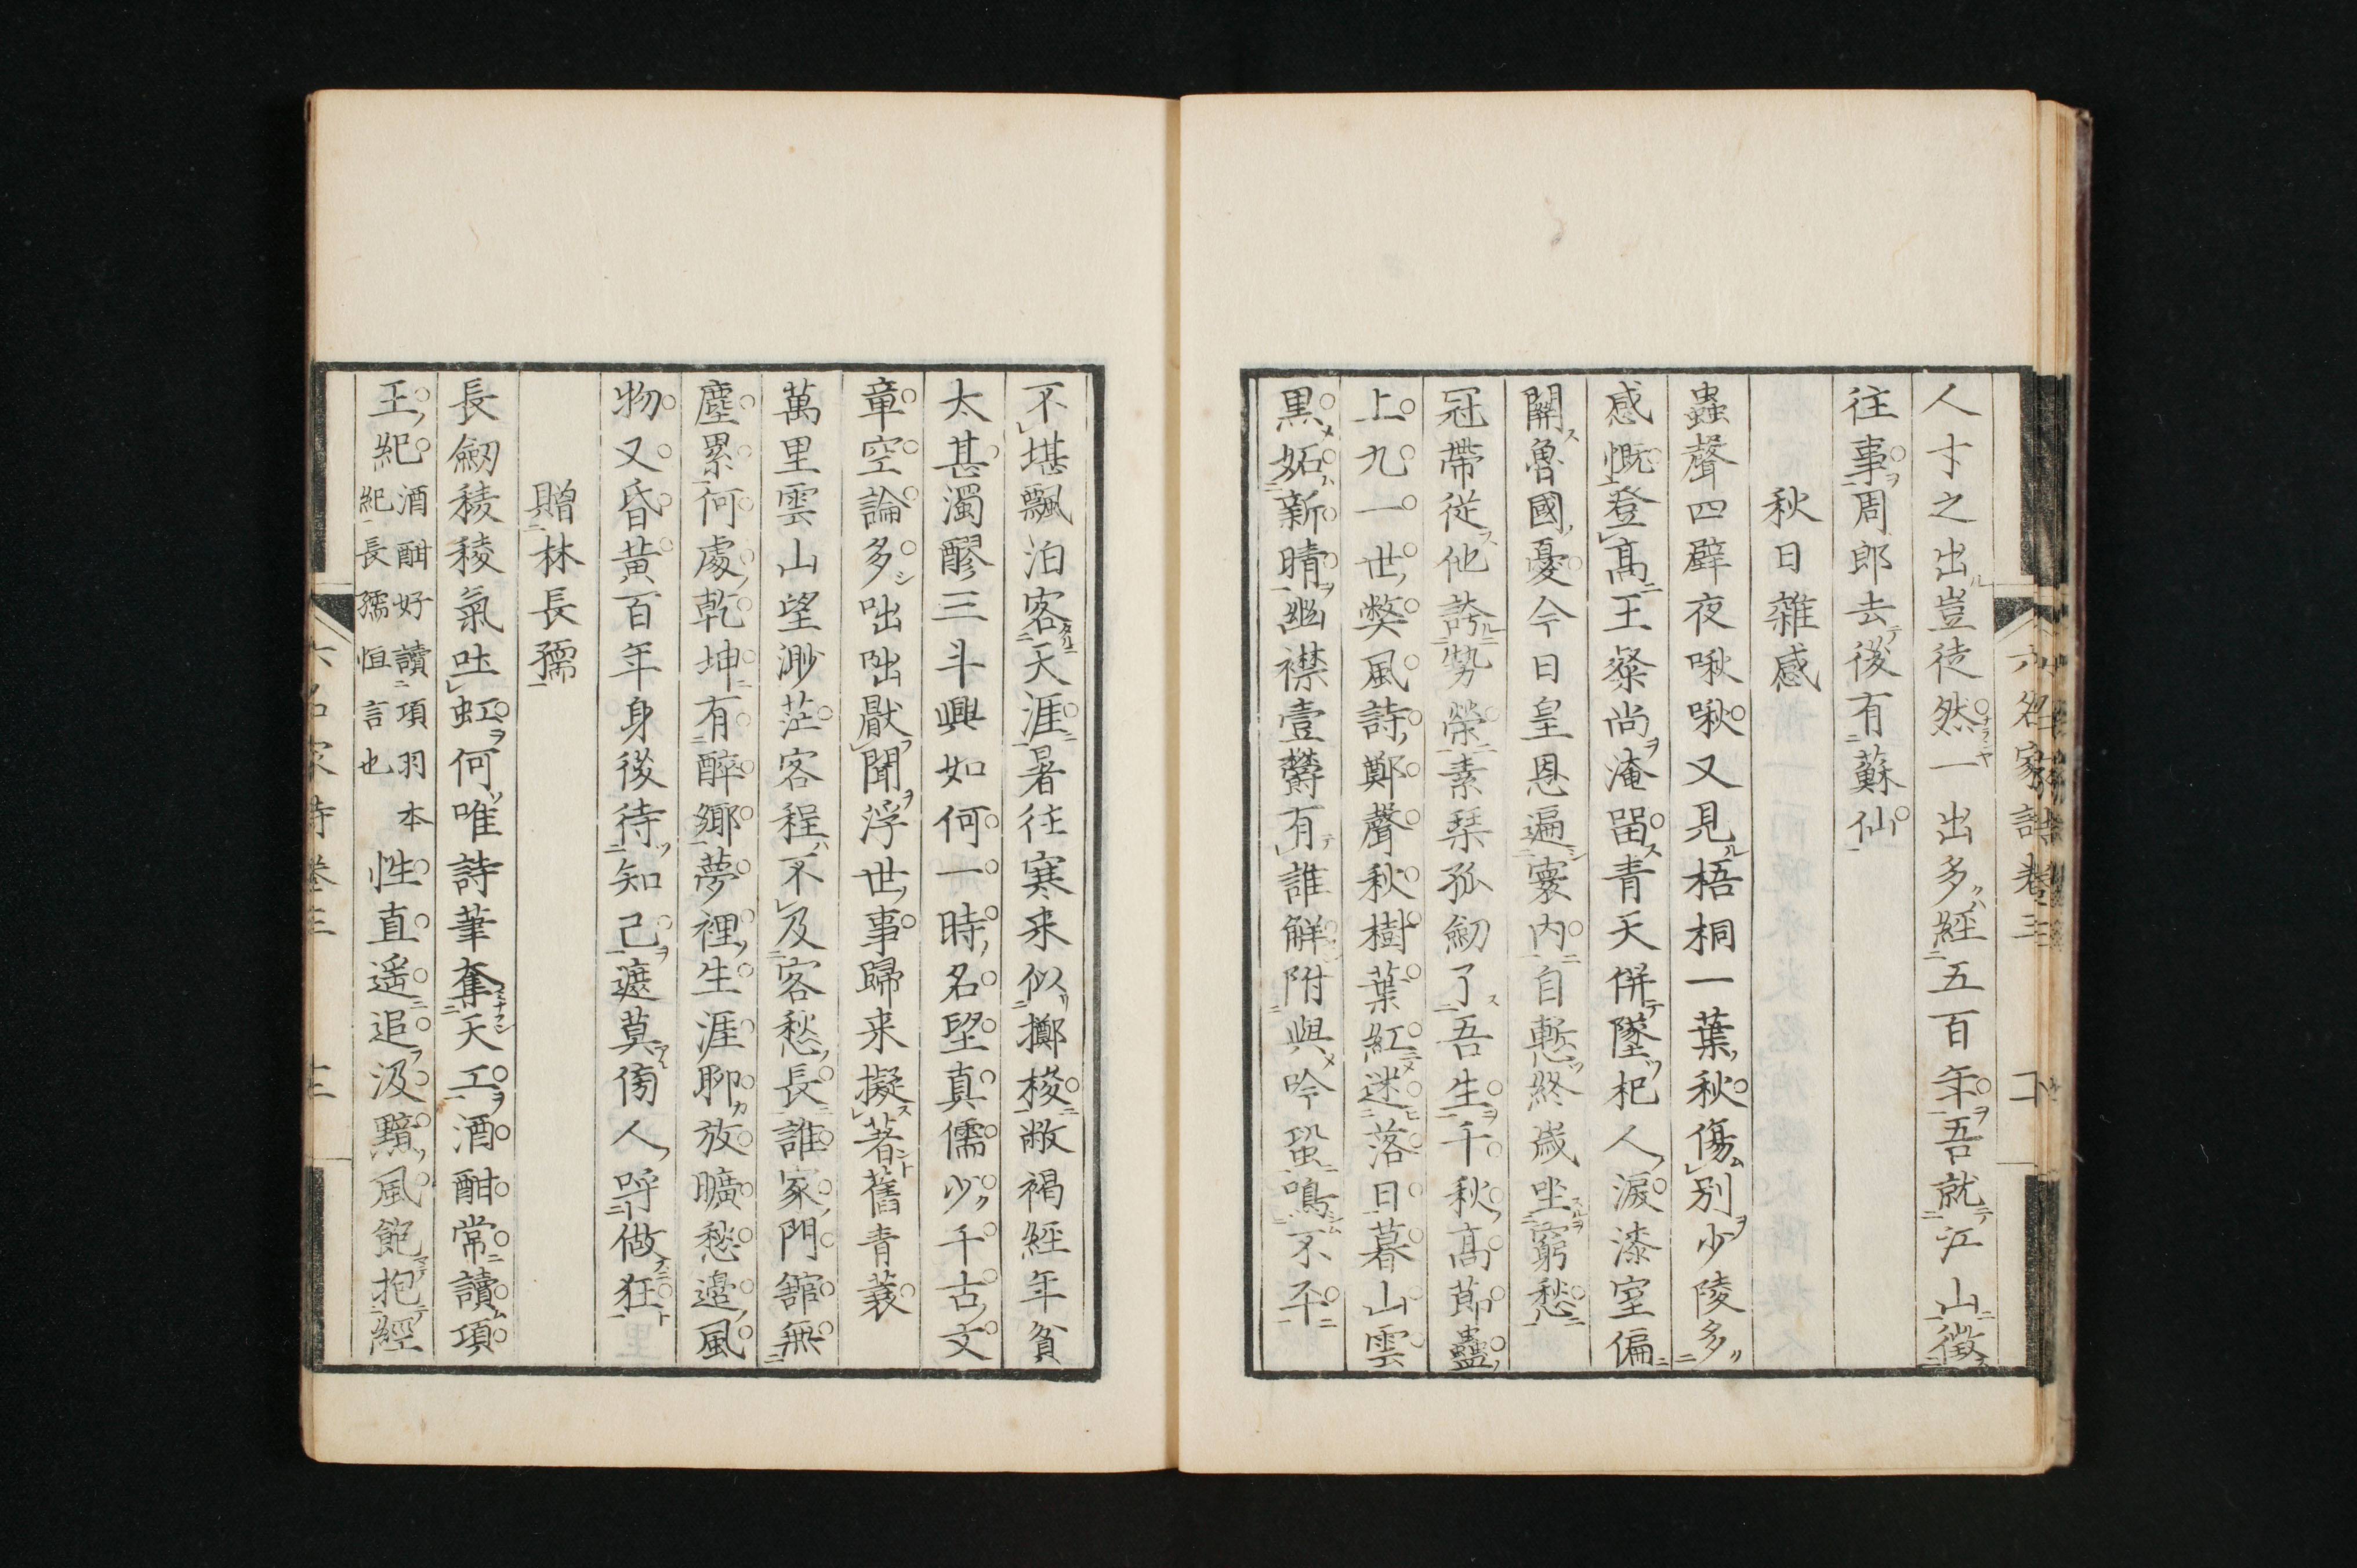 人才之出豈徒然一出多經五百年吾就江山徵
往事周郎去後有蘇仙
秋日雜感
蟲聲四壁夜啾啾又見梧桐一葉秋傷別少陵多
感慨登高王粲尚淹留青天併墜杞人淚漆室偏
關魯國憂今日皇恩遍寰内自慙終歲坐窮愁
冠帶従他誇勢榮素琴孤劒了吾生千秋高節蠱
上九一世弊風詩鄭聲秋樹葉紅迷落日暮山雲
黒妬新晴幽襟壹欝有誰解附與吟蛩鳴不平
不堪飄泊客天涯暑往寒来似擲梭敝褐經年貧
太甚濁醪三斗興如何一時名望真儒少千古文
章空論多咄咄厭聞浮世事歸来擬著舊青蓑
萬里雲山望渺茫客程不及客愁長誰家門舘無
塵累何處乾坤有醉郷夢裡生涯聊放曠愁邉風
物又昏黄百年身後待知己遮莫傍人呼做狂
贈林長孺
長劒稜稜氣吐虹何唯詩筆奪天工酒酣常讀項
王紀
酒酣好讀項羽本
紀長孺恒言也
性直遥追汲黯風飽抱經
六名家詩卷三
六名家詩卷三